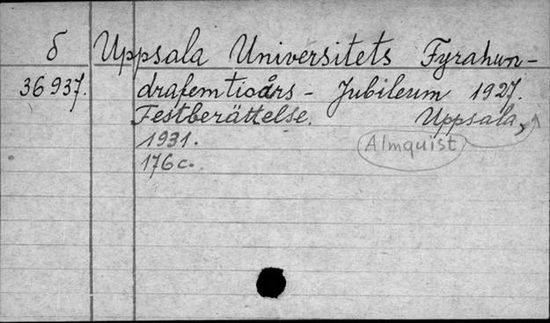 δ Uppsala Universitets Fyrahun-
36937. drafemtioårs - Jubileum 1927.
Festberättelse. Uppsala,
1931. Almquist
176 c.